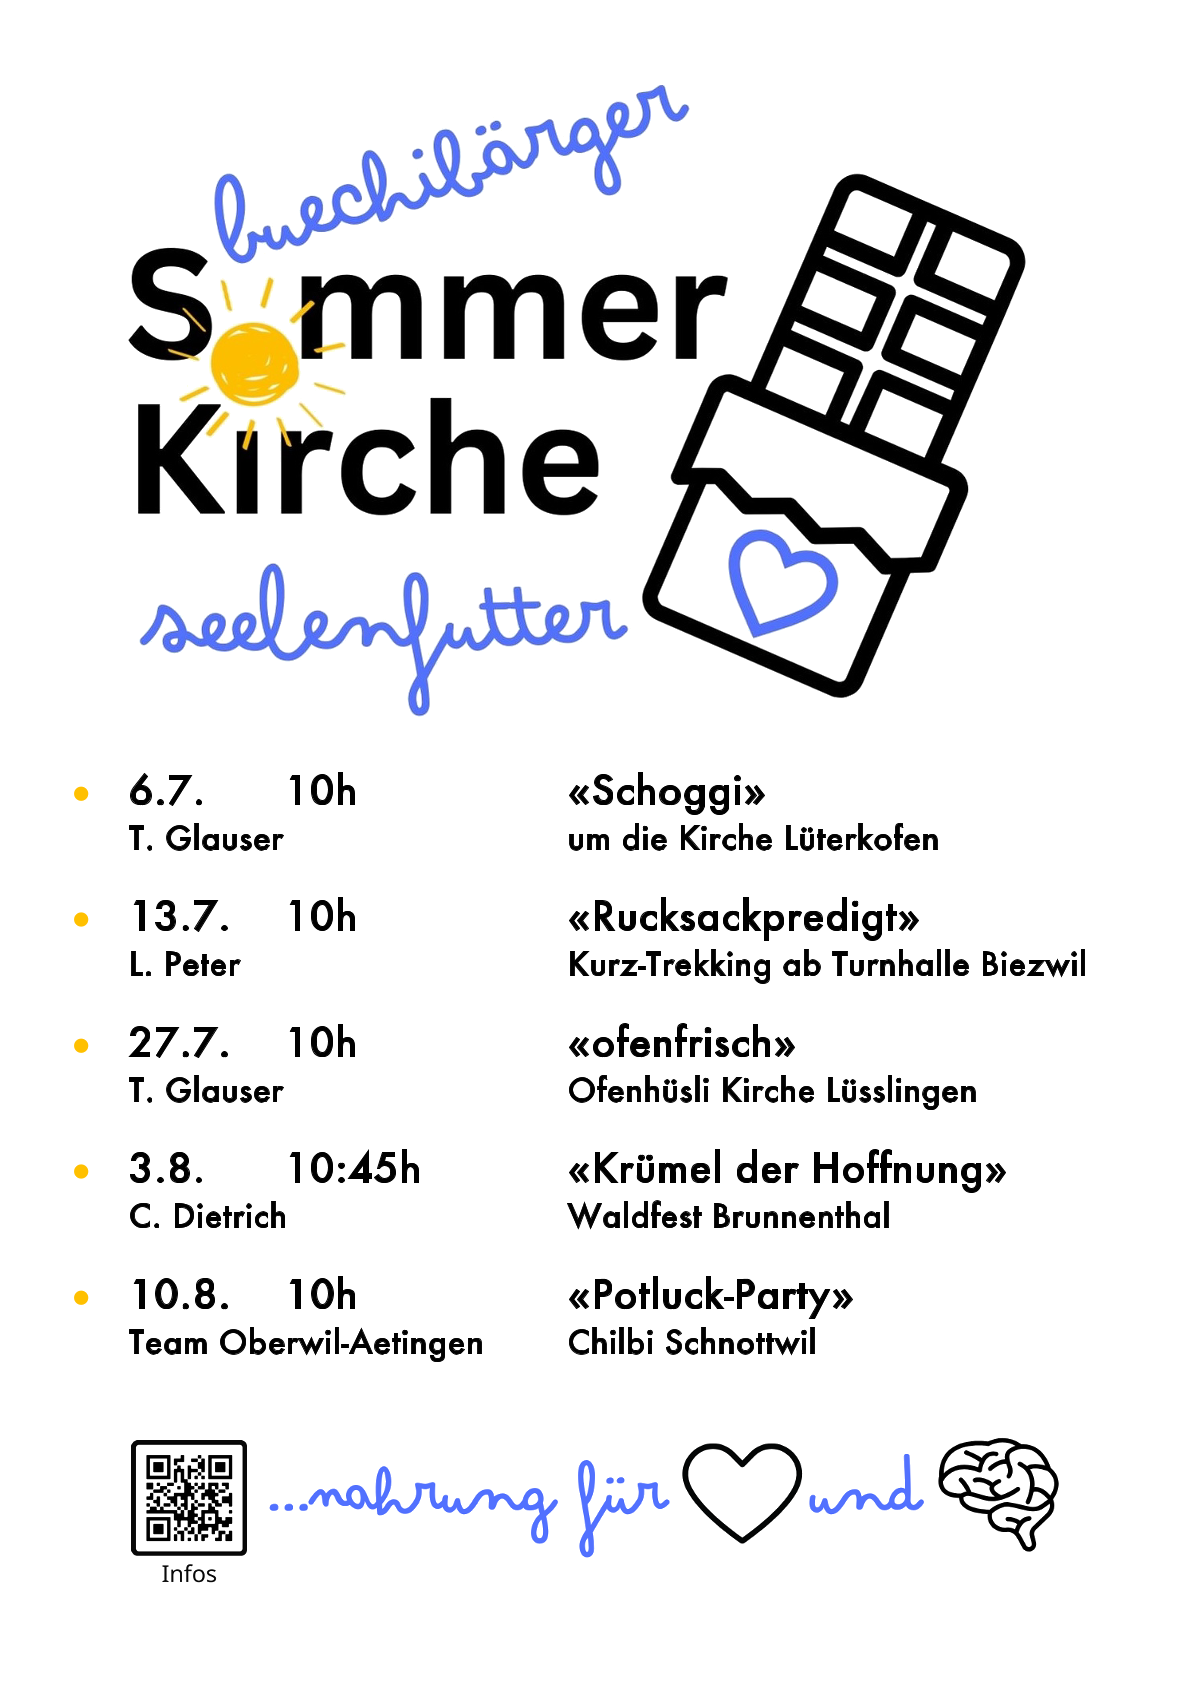 buechibärger
Sommer
Kirche
seelenfutter
6.7. 10h «Schoggi»
T. Glauser um die Kirche Lüterkofen
13.7. 10h «Rucksackpredigt»
L. Peter Kurz-Trekking ab Turnhalle Biezwil
27.7. 10h «ofenfrisch»
T. Glauser Ofenhüsli Kirche Lüsslingen
3.8. 10:45h «Krümel der Hoffnung»
C. Dietrich Waldfest Brunnenthal
10.8. 10h «Potluck-Party»
Team Oberwil-Aetingen Chilbi Schnottwil
...nahrung für und
Infos